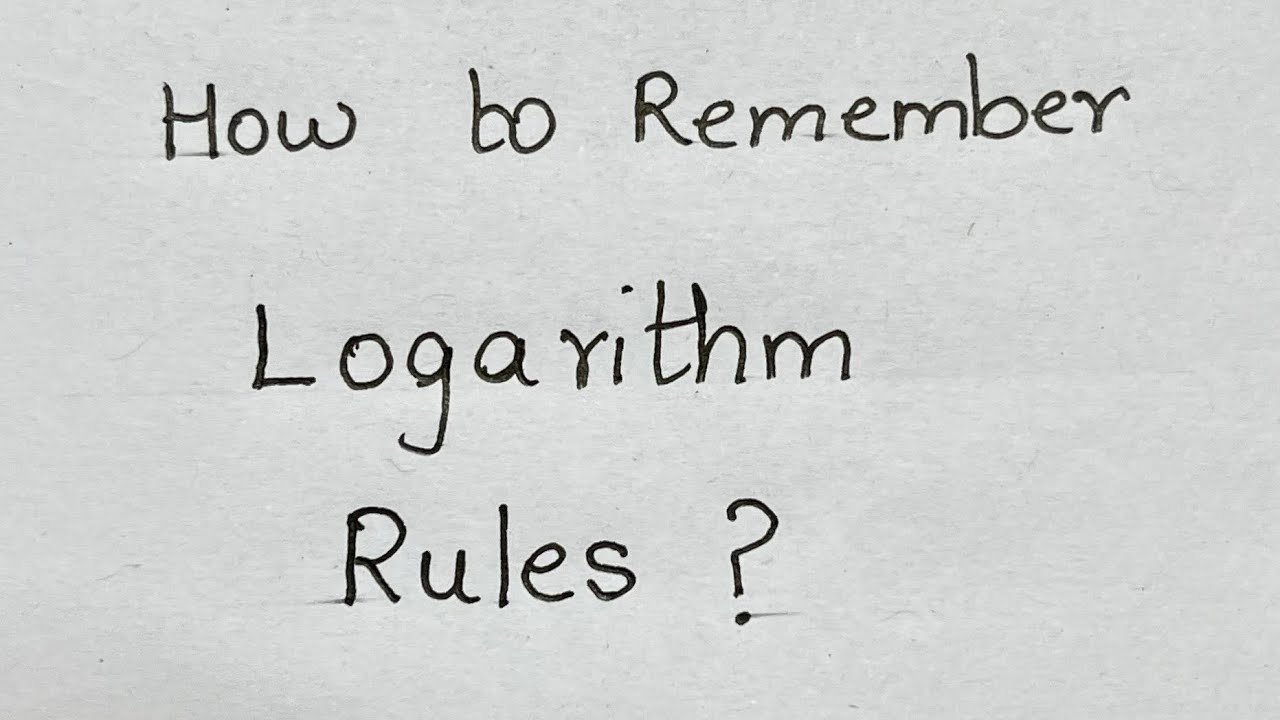 How to Remember
Logarithm
Rules ?